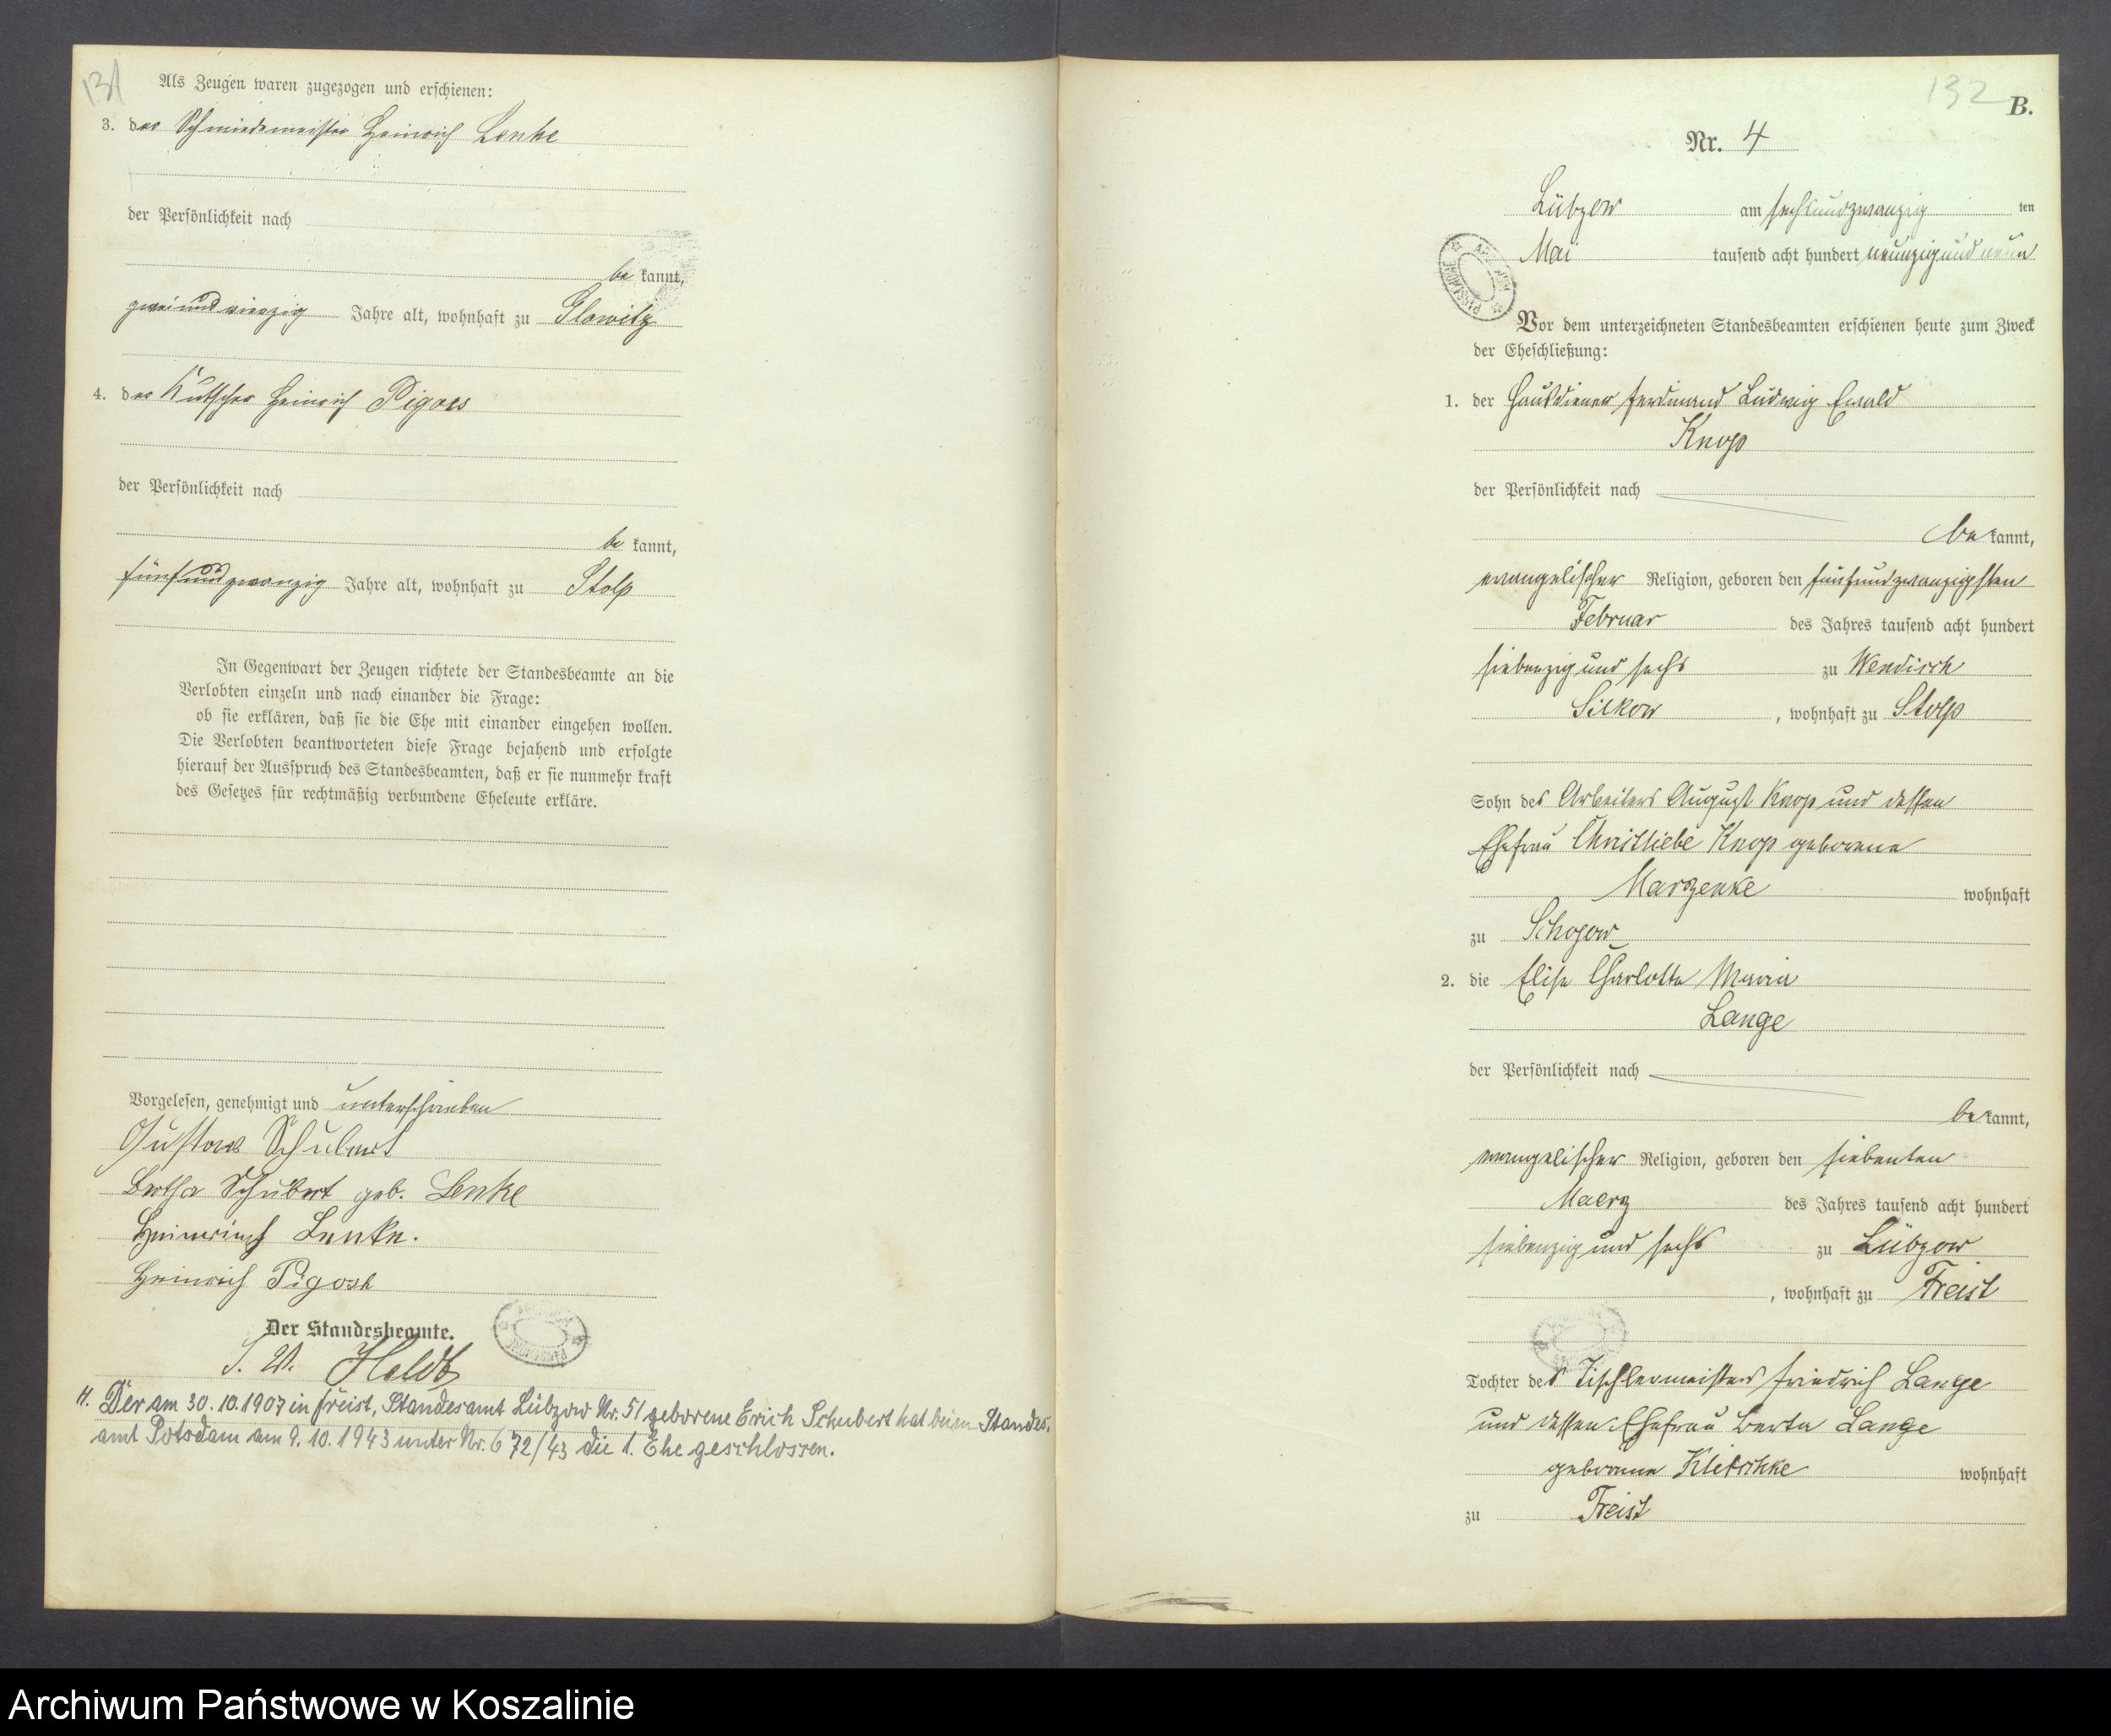 131
Als Zeugen waren zugezogen und erschienen:
3. der Schmiedemeister Heinrich Lenke
der Persönlichkeit nach
be kannt,
zweiundvierzig Jahre alt, wohnhaft zu Glowitz
4. der Kutscher Heinrich Pigors
der Persönlichkeit nach
be kannt,
fünfundzwanzig Jahre alt, wohnhaft zu Stolp
In Gegenwart der Zeugen richtete der Standesbeamte an die
Verlobten einzeln und nach einander die Frage:
ob sie erklären, daß sie die Ehe mit einander eingehen wollen.
Die Verlobten beantworteten diese Frage bejahend und erfolgte
hierauf der Ausspruch des Standesbeamten, daß er sie nunmehr kraft
des Gesetzes für rechtmäßig verbundene Eheleute erkläre.
Vorgelesen, genehmigt und unterschrieben
Gustav Schubert
Bertha Schubert geb. Lenke
Heinrich Lenke.
Heinrich Pigorsch
Der Standesbeamte.
I. V. Holdt
H. Der am 30.10.1907 in Freist, Standesamt Lübzow Nr. 51 geborene Erich Schubert hat beim Standes-
amt Potsdam am 9.10.1943 unter Nr. 672/43 die 1. Ehe geschlossen.
132
B.
Nr. 4
Lübzow am sechsundzwanzig ten
Mai tausend acht hundert neunzig und neun
Vor dem unterzeichneten Standesbeamten erschienen heute zum Zweck
der Eheschließung:
1. der Hausdiener Ferdinand Ludwig Ewald
Knop
der Persönlichkeit nach
be kannt,
evangelischer Religion, geboren den fünfundzwanzigsten
Februar des Jahres tausend acht hundert
siebenzig und sechs zu Wendisch
Silkow, wohnhaft zu Stolp
Sohn des Arbeiters August Knop und dessen
Ehefrau Christliebe Knop geborene
Marzenke wohnhaft
zu Schojow
2. die Elise Charlotte Maria
Lange
der Persönlichkeit nach
be kannt,
evangelischer Religion, geboren den siebenten
Maerz des Jahres tausend acht hundert
siebenzig und sechs zu Lübzow
, wohnhaft zu Freist
Tochter des Tischlermeisters Friedrich Lange
und dessen Ehefrau Berta Lange
geborene Klitschke wohnhaft
zu Freist
Archiwum Państwowe w Koszalinie